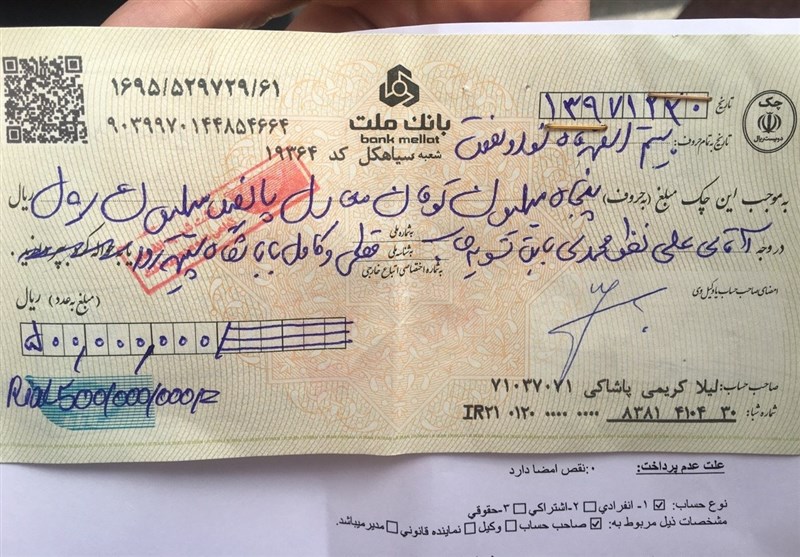 ۱۶۹۵/۵۲۹۷۲۹/۶۱
۹۰۳۹۹۷۰۱۴۴۸۵۴۶۶۴
بانك ملت
bank mellat
شعبه سیاهکل کد ۱۹۳۶۴
چک
تاریخ ۱۳۹۷۱۲۳۰
تاریخ به تمام حروف:
به موجب این چک مبلغ (به حروف) پنجاه میلیون تومان معادل پانصد میلیون ریال ریال
در وجه آقای علی نظرمحمدی بابت تسویه حساب قطعی و کامل باشگاه سپیدرود
به شماره ملی
به شناسه ملی
به شماره اختصاصی اتباع خارجی
امضای صاحب حساب یا وکیل وی
مبلغ به عدد) ریال
۵۰۰,۰۰۰,۰۰۰/
Rial 500/000/000
صاحب حساب: لیلا کریمی پاشاکی ۷۱۰۳۷۰۷۱
شماره شبا: IR۲۱ ۰۱۲۰ ۰۰۰۰ ۰۰۰۰ ۸۳۸۱ ۴۱۰۴ ۳۰
علت عدم پرداخت: ۰:نقص امضا دارد
نوع حساب: ☑ ۱- انفرادي □ ۲-اشتراکي □ ۳-حقوقي
مشخصات ذیل مربوط به: ☑ صاحب حساب □ وکیل □ نماینده قانوني □ مدیر میباشد.